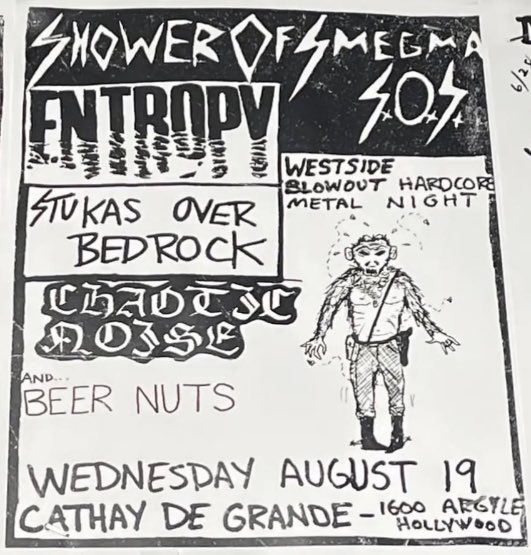 SHOWER OF SMEGMA
S.O.S.
ENTROPY
WESTSIDE
BLOWOUT HARDCORE
METAL NIGHT
STUKAS OVER
BEDROCK
CHAOTIC
NOISE
AND...
BEER NUTS
WEDNESDAY AUGUST 19
CATHAY DE GRANDE - 1600 ARGYLE
HOLLYWOOD